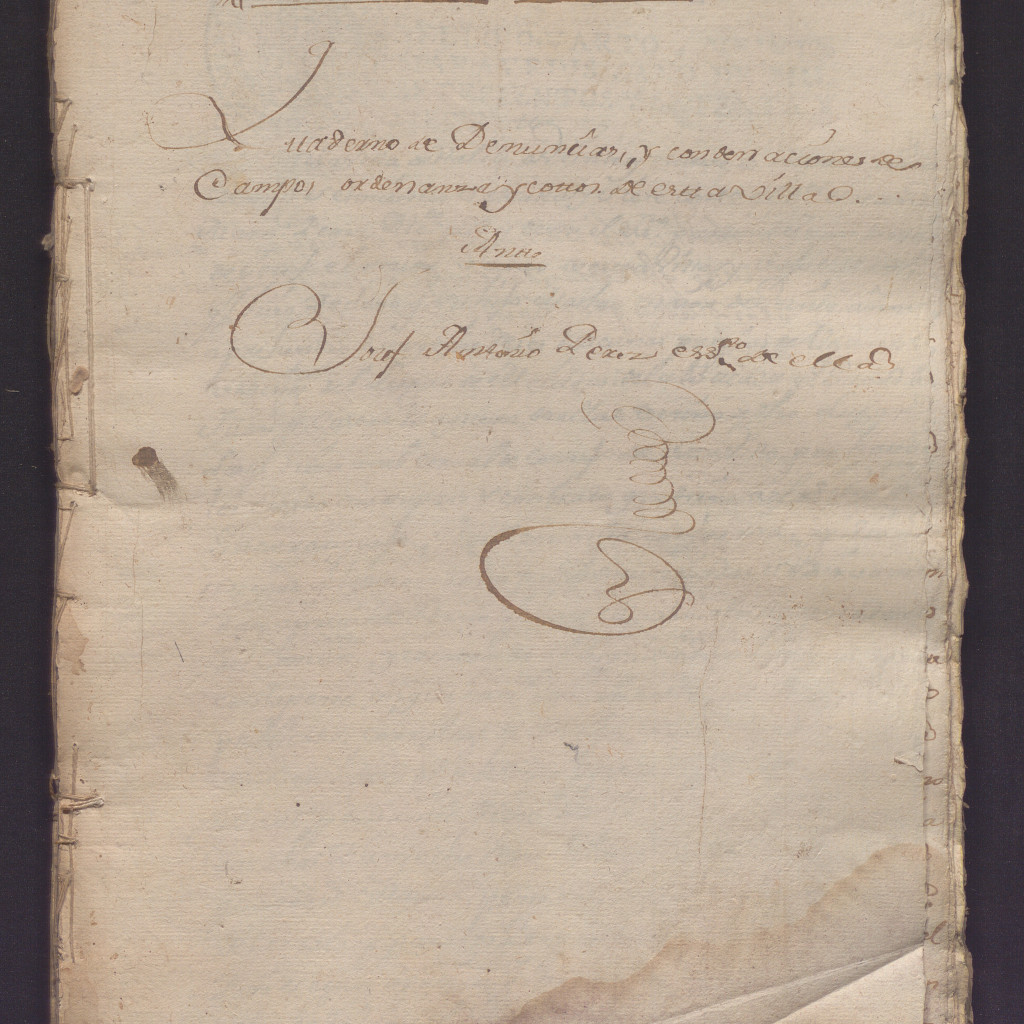 Quaderno de Denuncias, y condenaciones de
Campo, ordenanza y cottos de estta Villa
Antte
Josef Antonio Perez essno de ella